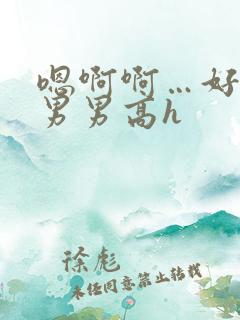 嗯啊啊…好
男男高h
徐彪
未经同意禁止转载